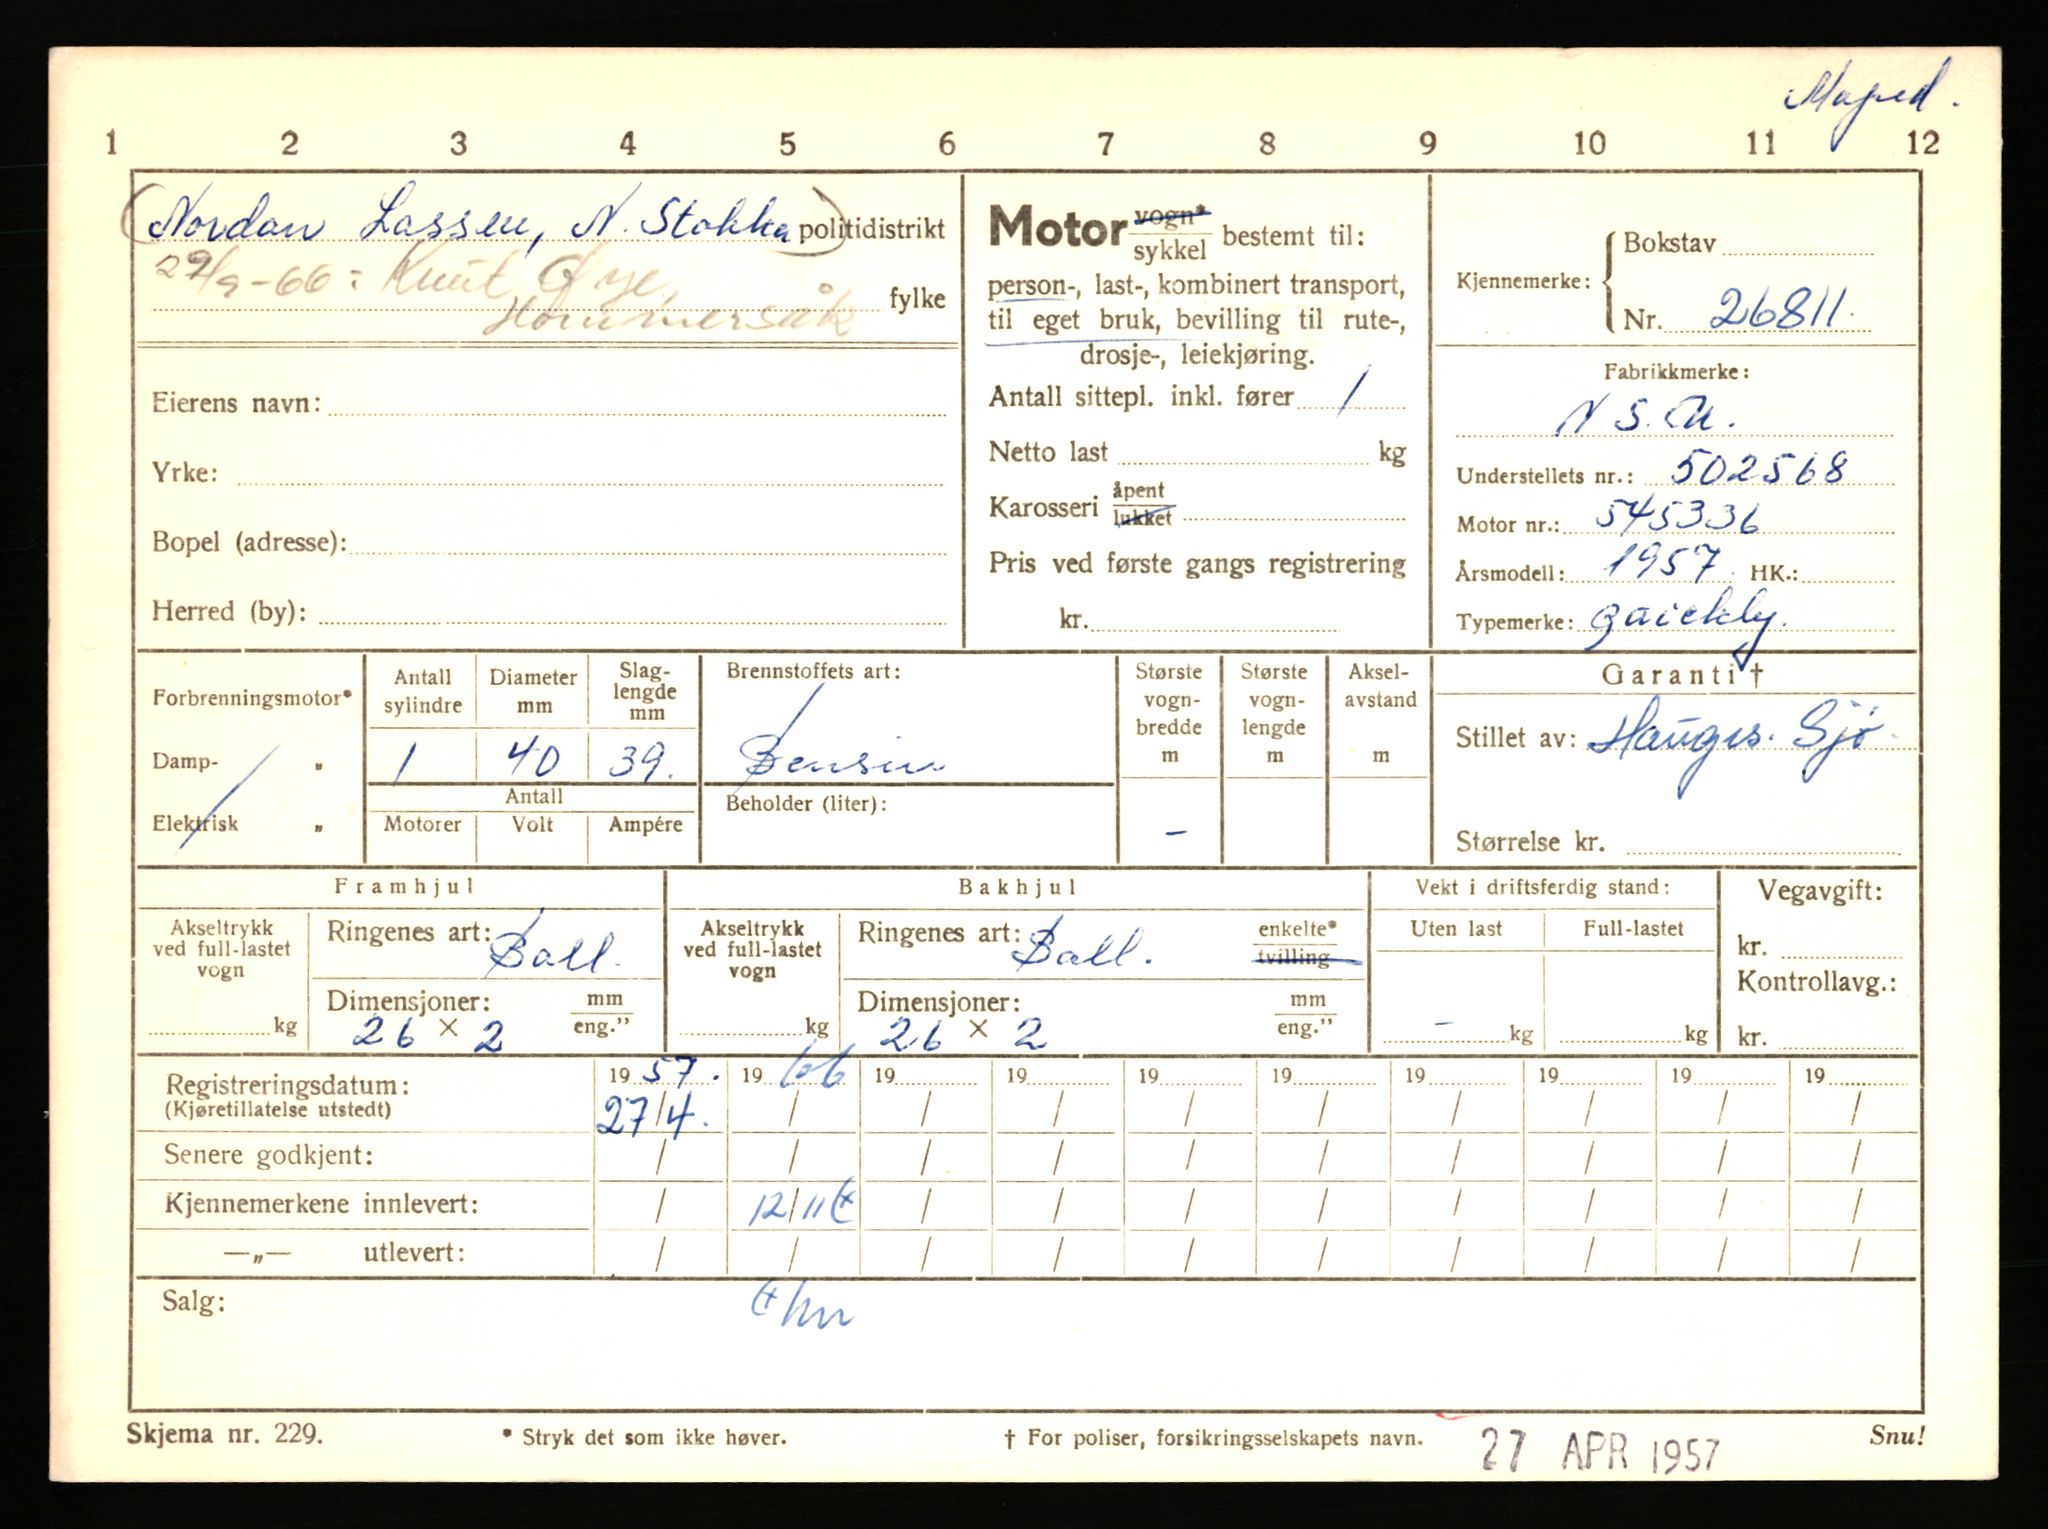 Moped.
1 2 3 4 5 6 7 8 9 10 11 12
(Nordan Lassen, N. Stokka) politidistrikt
29/9-66: Knut Øye,
Hommersåk fylke
Eierens navn:
Yrke:
Bopel (adresse):
Herred (by):
Motor vogn* sykkel bestemt til:
person-, last-, kombinert transport,
til eget bruk, bevilling til rute-,
drosje-, leiekjøring.
Antall sittepl. inkl. fører 1
Netto last kg
Karosseri åpent lukket
Pris ved første gangs registrering
kr.
Kjennemerke: Bokstav
Nr. 26811.
Fabrikkmerke:
N.S.U.
Understellets nr.: 502568
Motor nr.: 545336
Årsmodell: 1957 HK.:
Typemerke: Quickly.
Forbrenningsmotor*
Damp- „
Elektrisk „
Antall sylindre 1
Diameter mm 40
Slag-lengde mm 39.
Antall
Motorer Volt Ampére
Brennstoffets art:
Bensin
Beholder (liter):
Største vogn-bredde m -
Største vogn-lengde m
Aksel-avstand m
Garanti †
Stillet av: Hauges. Sjø.
Størrelse kr.
Framhjul
Akseltrykk ved full-lastet vogn kg
Ringenes art: Ball.
Dimensjoner: mm eng."
26 × 2
Bakhjul
Akseltrykk ved full-lastet vogn kg
Ringenes art: Ball. enkelte* tvilling
Dimensjoner: mm eng."
26 × 2
Vekt i driftsferdig stand:
Uten last - kg
Full-lastet kg
Vegavgift:
kr.
Kontrollavg.:
kr.
Registreringsdatum: 19 57. 19 66 19 19 19 19 19 19 19 19
(Kjøretillatelse utstedt) 27/4. / / / / / / / / /
Senere godkjent: / / / / / / / / / /
Kjennemerkene innlevert: / 12/11 / / / / / / / /
—„— utlevert: / / / / / / / / / /
Salg:
Skjema nr. 229.
* Stryk det som ikke høver.
† For poliser, forsikringsselskapets navn.
27 APR 1957
Snu!